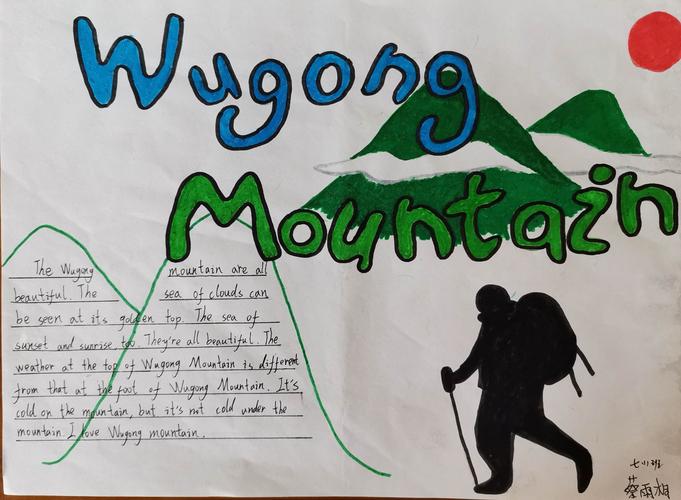 Wugong
Mountain
The Wugong mountain are all
beautiful. The sea of clouds can
be seen at its golden top. The sea of
sunset and sunrise too. They're all beautiful. The
weather at the top of Wugong Mountain is different
from that at the foot of Wugong Mountain. It's
cold on the mountain, but it's not cold under the
mountain. I love Wugong mountain.
七(1)班
蔡雨